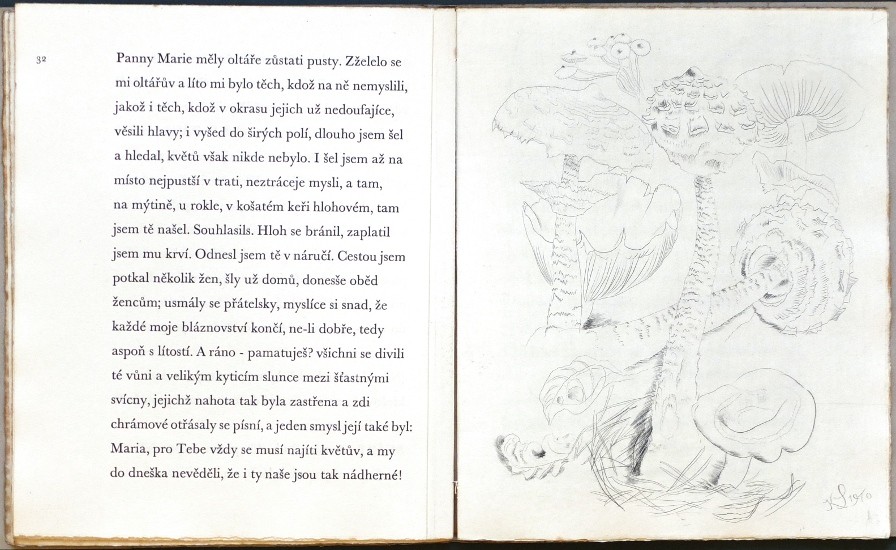 32
Panny Marie měly oltáře zůstati pusty. Zželelo se
mi oltářův a líto mi bylo těch, kdož na ně nemyslili,
jakož i těch, kdož v okrasu jejich už nedoufajíce,
věsili hlavy; i vyšed do širých polí, dlouho jsem šel
a hledal, květů však nikde nebylo. I šel jsem až na
místo nejpustší v trati, neztráceje mysli, a tam,
na mýtině, u rokle, v košatém keři hlohovém, tam
jsem tě našel. Souhlasils. Hloh se bránil, zaplatil
jsem mu krví. Odnesl jsem tě v náručí. Cestou jsem
potkal několik žen, šly už domů, donesše oběd
žencům; usmály se přátelsky, myslíce si snad, že
každé moje bláznovství končí, ne-li dobře, tedy
aspoň s lítostí. A ráno - pamatuješ? všichni se divili
té vůni a velikým kyticím slunce mezi šťastnými
svícny, jejichž nahota tak byla zastřena a zdi
chrámové otřásaly se písní, a jeden smysl její také byl:
Maria, pro Tebe vždy se musí najíti květův, a my
do dneška nevěděli, že i ty naše jsou tak nádherné!